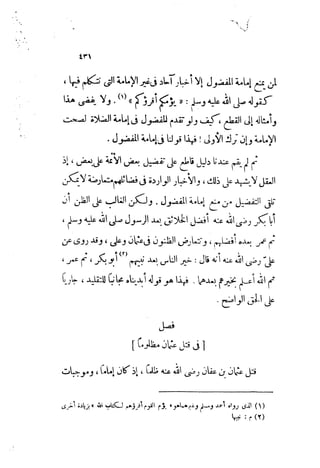 ٤٣١
لمن يمنع إمامة المفضول إلا أخبار آحاد فى غير الإمامة التى نتكلم فيها ،
كقوله صلى الله عليه وسلم : « يؤمكم أقرؤكم » (١) . ولا يفضى هذا
وأمثاله إلى القطع ، كيف ولو تقدم المفضول فى إمامة الصلاة لصحت
الإمامة وإن ترك الأولى ؛ فهذا قولنا فى إمامة المفضول .
ثم لم يقم عندنا دليل قاطع على تفضيل بعض الأئمة على بعض ، إذ
العقل لا يشهد على ذلك ، والأخبار الواردة فى فضائلهم متعارضة لا يمكن
تلقى التفضيل من منع إمامة المفضول . ولكن الغالب على الظن أن
أبا بكر رضى الله عنه أفضل الخلائق بعد الرسول صلى الله عليه وسلم ،
ثم عمر بعده أفضلهم ، وتتعارض الظنون فى عثمان وعلى ، وقد روى عن
على رضى الله عنه أنه قال : خير الناس بعد نبيهم (٢) أبو بكر ، ثم عمر ،
ثم الله أعلم بخيرهم بعدهما . فهذا هو قوله أبديناه مجانبا للتقليد ، جاريا
على الحق الواضح .
فصل
[ فى قتل عثمان مظلوما ]
قتل عثمان بن عفان رضى الله عنه ظلما ، إذ كان إماما ، وموجبات
(١) الذى رواه أحمد ومسلم وغيرهما هو « يؤم القوم أقرؤهم لكتاب الله » بزيادة أخرى
(٢) م : نبيها